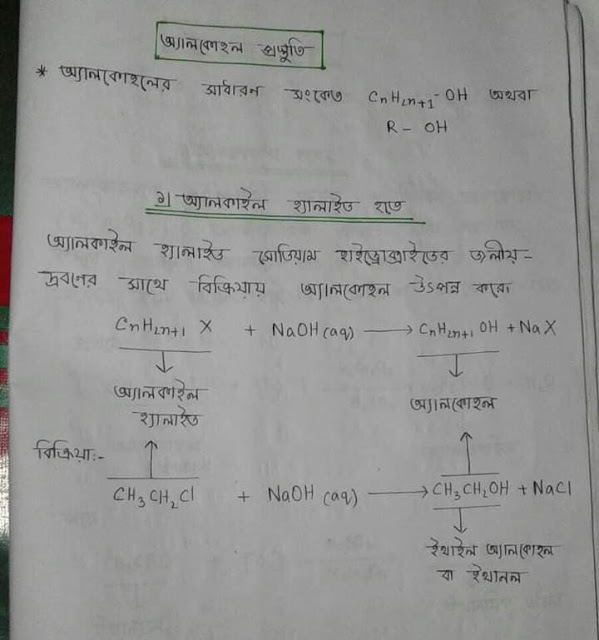 অ্যালকোহল প্রস্তুতি
* অ্যালকোহলের সাধারন সংকেত CnH2n+1-OH অথবা
R - OH
১) অ্যালকাইল হ্যালাইড হতে
অ্যালকাইল হ্যালাইড সোডিয়াম হাইড্রোক্সাইডের জলীয়-
দ্রবণের সাথে বিক্রিয়ায় অ্যালকোহল উৎপন্ন করে।
CnH2n+1 X + NaOH (aq) → CnH2n+1 OH + NaX
↓ ↓
অ্যালকাইল অ্যালকোহল
হ্যালাইড
বিক্রিয়া:- ↑ ↑
CH3CH2Cl + NaOH (aq) → CH3CH2OH + NaCl
↓
ইথাইল অ্যালকোহল
বা ইথানল